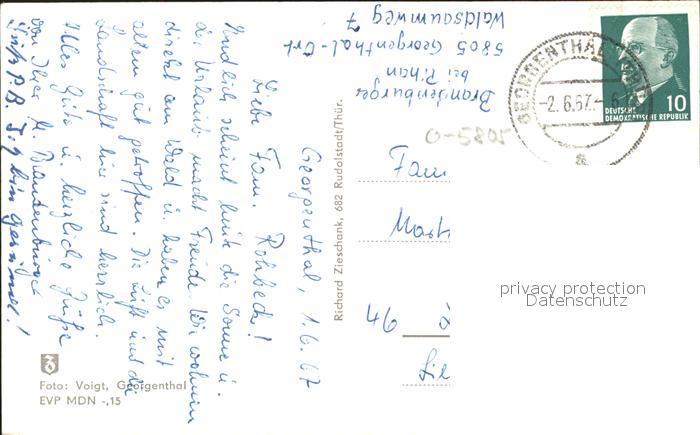 Georgenthal, 1.6.67
Liebe Fam. Rohbeck!
Endlich scheint heute die Sonne u.
der Urlaub macht Freude. Wir wohnen
direkt am Wald u. haben es mit
allem gut getroffen. Die Luft und die
Landschaft hier sind herrlich.
Alles Gute u. herzliche Grüße
von Ihrer
Brandenburger
bei Rihan
5805 Georgenthal-Ort
Waldsaumweg
7
O-5805
GEORGENTHAL
-2.6.67.-
a
10
DEUTSCHE
DEMOKRATISCHE REPUBLIK
Fam
46
Richard Zieschank, 682 Rudolstadt/Thür.
Foto: Voigt, Georgenthal
EVP MDN -,15
privacy protection
Datenschutz